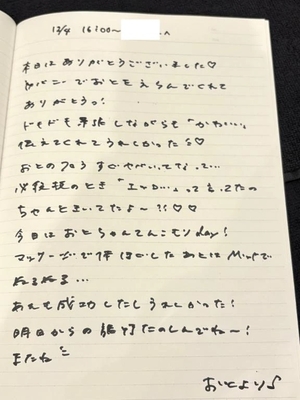 12/4 16:00〜 ん
本日はありがとうございました♡
でおとをえらんでくれて
ありがとうっ!
ドキドキ緊張しながらも「かわいい」
伝えてくれてうれしかったよ♡
おとの
必殺技のとき「」って言ってたの
ちゃんときいてたよ〜?!♡♡
今日はおとちゃんてんこもりday!
マッサージで体ほぐしたあとはMintで
ねるねる...
あれも成功したしうれしかった!
明日からの旅行たのしんでね〜!
またね
おとより♪